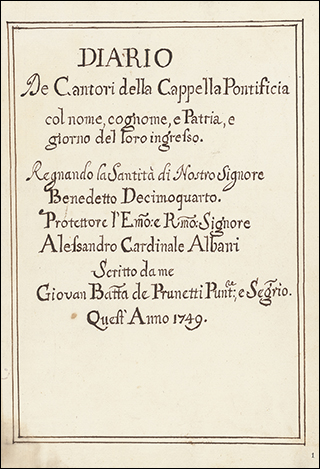 DIARIO
De Cantori della Cappella Pontificia
col nome, cognome, e Patria, e
giorno del loro ingresso.
Regnando la Santità di Nostro Signore
Benedetto Decimoquarto.
Protettore l'Emo: e Rmo: Signore
Alessandro Cardinale Albani
Scritto da me
Giovan Batta de Prunetti Punt:re, e Segrio.
Quest' Anno 1749.
1